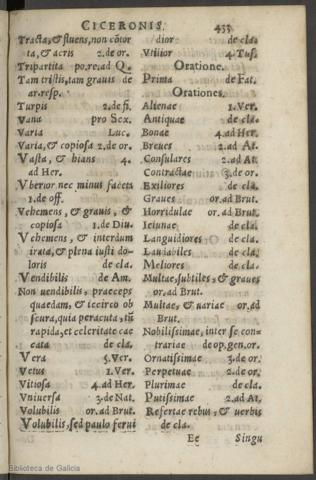 CICERONIS. 433
Tracta, & fluens, non cõtor
ta, & acris 2. de or.
Tripartita po. re. ad Q.
Tam tristis, tam grauis de
ar. resp.
Turpis 2. de fi.
Vana pro Sex.
Varia Luc.
Varia, & copiosa 2. de or.
Vasta, & hians 4.
ad Her.
Vberior nec minus faceta
1. de off.
Vehemens, & grauis, &
copiosa 1. de Diu.
Vehemens, & interdum
irata, & plena iusti do-
loris de cla.
Vendibilis de Am.
Non uendibilis, praeceps
quaedam, & iccirco ob
scura, quia peracuta, tũ
rapida, et celeritate cae
cata de cla.
Vera 5. Ver.
Vetus 1. Ver.
Vitiosa 4. ad Her.
Vniuersa 3. de Nat.
Volubilis or. ad Brut.
Volubilis, sed paulo ferui
dior de cla.
Vtilior 4. Tus.
Oratione.
Prima de Fat.
Orationes.
Alienae 1. Ver.
Antiquae de cla.
Bonae 4. ad Her.
Breues 2. ad At.
Consulares 2. ad At.
Contractae 3. de or.
Exiliores de cla.
Graues or. ad Brut.
Horridulae or. ad Brut.
Ieiunae de cla.
Languidiores de cla.
Laudabiles de cla.
Meliores de cla.
Multae, subtiles, & graues
or. ad Brut.
Multae, & uariae or. ad
Brut.
Nobilissimae, inter se con-
trariae de op. gen. or.
Ornatissimae 3. de or.
Perpetuae 2. de or.
Plurimae de cla.
Putissimae 2. ad At.
Refertae rebus, & uerbis
de cla.
Ee Singu
Biblioteca de Galicia